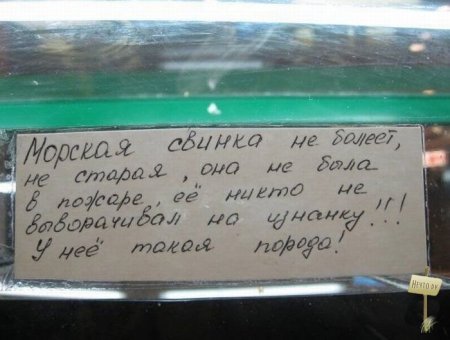 Морская свинка не болеет,
не старая, она не была
в пожаре, её никто не
выворачивал на изнанку!!!
У неё такая порода!
НЕЧТО.BY